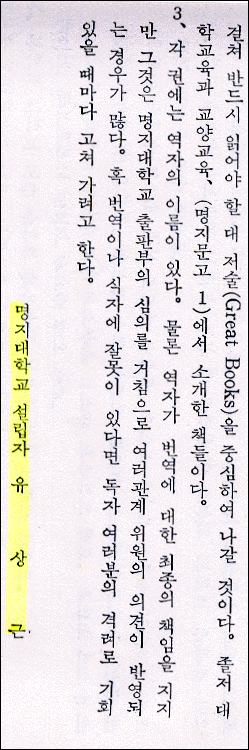 걸쳐 반드시 읽어야 할 대 저술(Great Books)을 중심하여 나갈 것이다. 졸저 대
학교육과 교양교육、(명지문고 1)에서 소개한 책들이다.
3、각 권에는 역자의 이름이 있다. 물론 역자가 번역에 대한 최종의 책임을 지지
만 그것은 명지대학교 출판부의 심의를 거침으로 여러관계 위원의 의견이 반영되
는 경우가 많다. 혹 번역이나 식자에 잘못이 있다면 독자 여러분의 격려로 기회
있을 때마다 고쳐 가려고 한다.
명지대학교 설립자 유 상 근